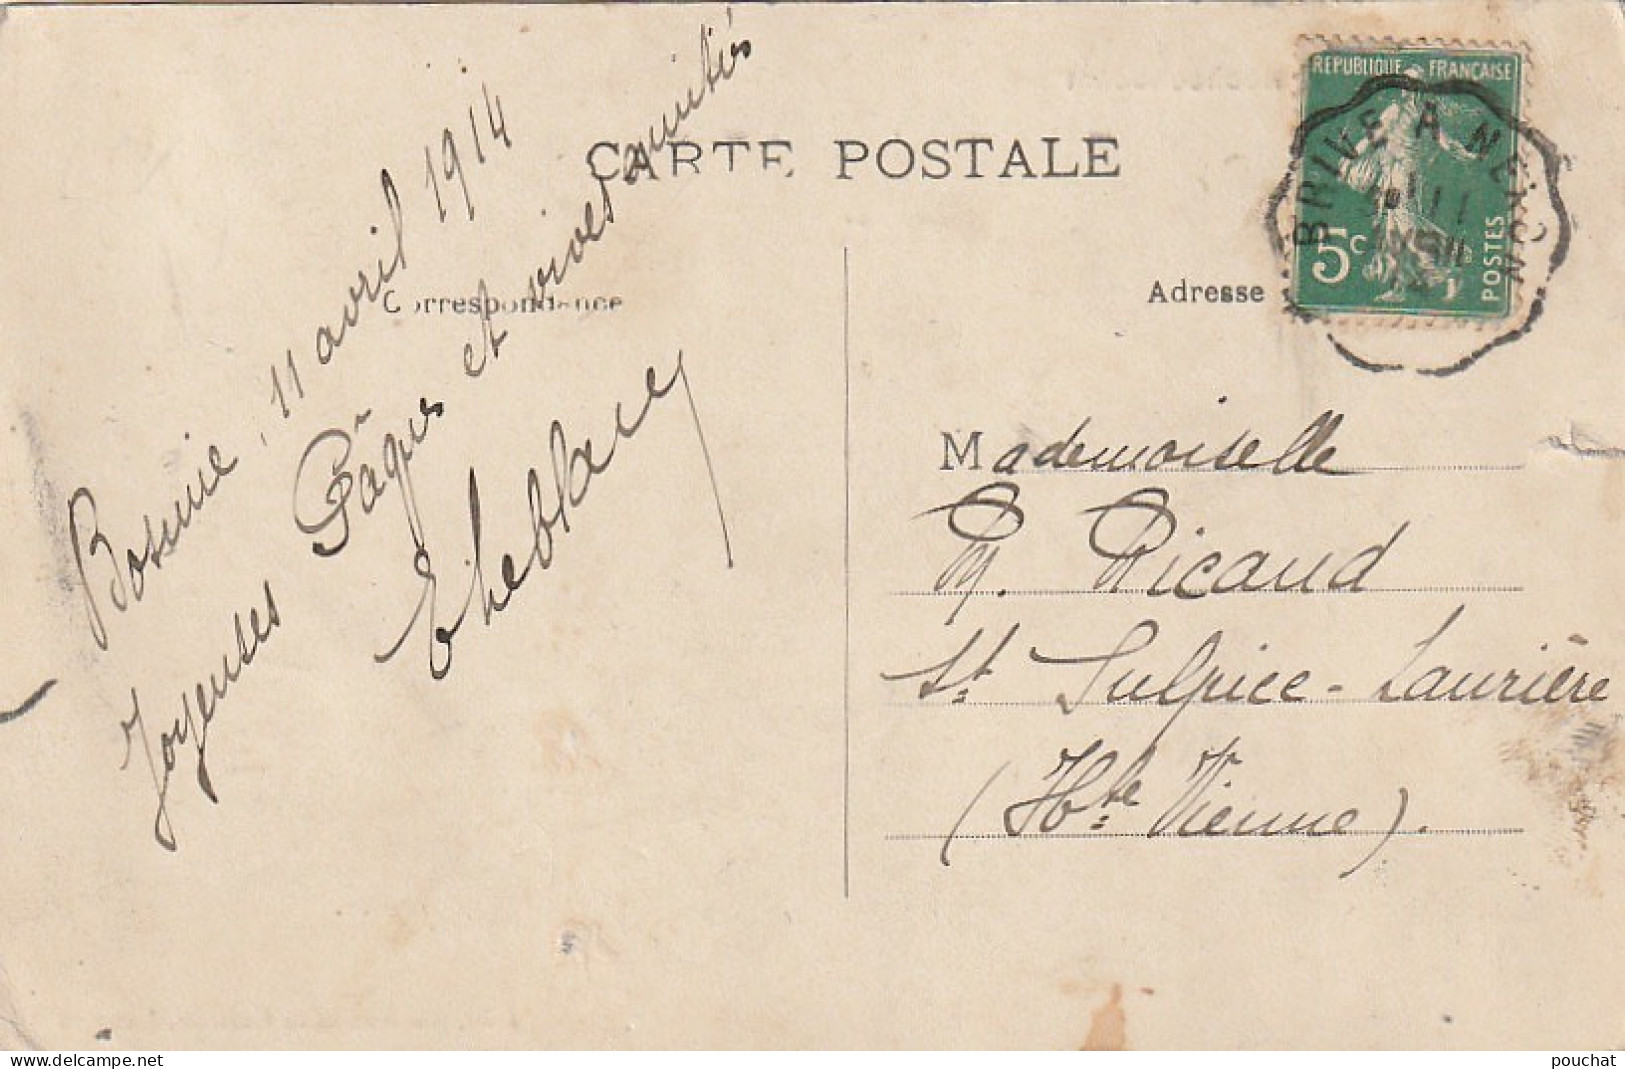 CARTE POSTALE
Correspondance
Adresse
RÉPUBLIQUE FRANÇAISE
5c
POSTES
BRIVE A NEXON
11
Bosmie, 11 avril 1914
Joyeuses Pâques et vives amitiés
Mademoiselle
M. Ricaud
St Sulpice-Laurière
(Hte Vienne).
delcampe.net
pouchat